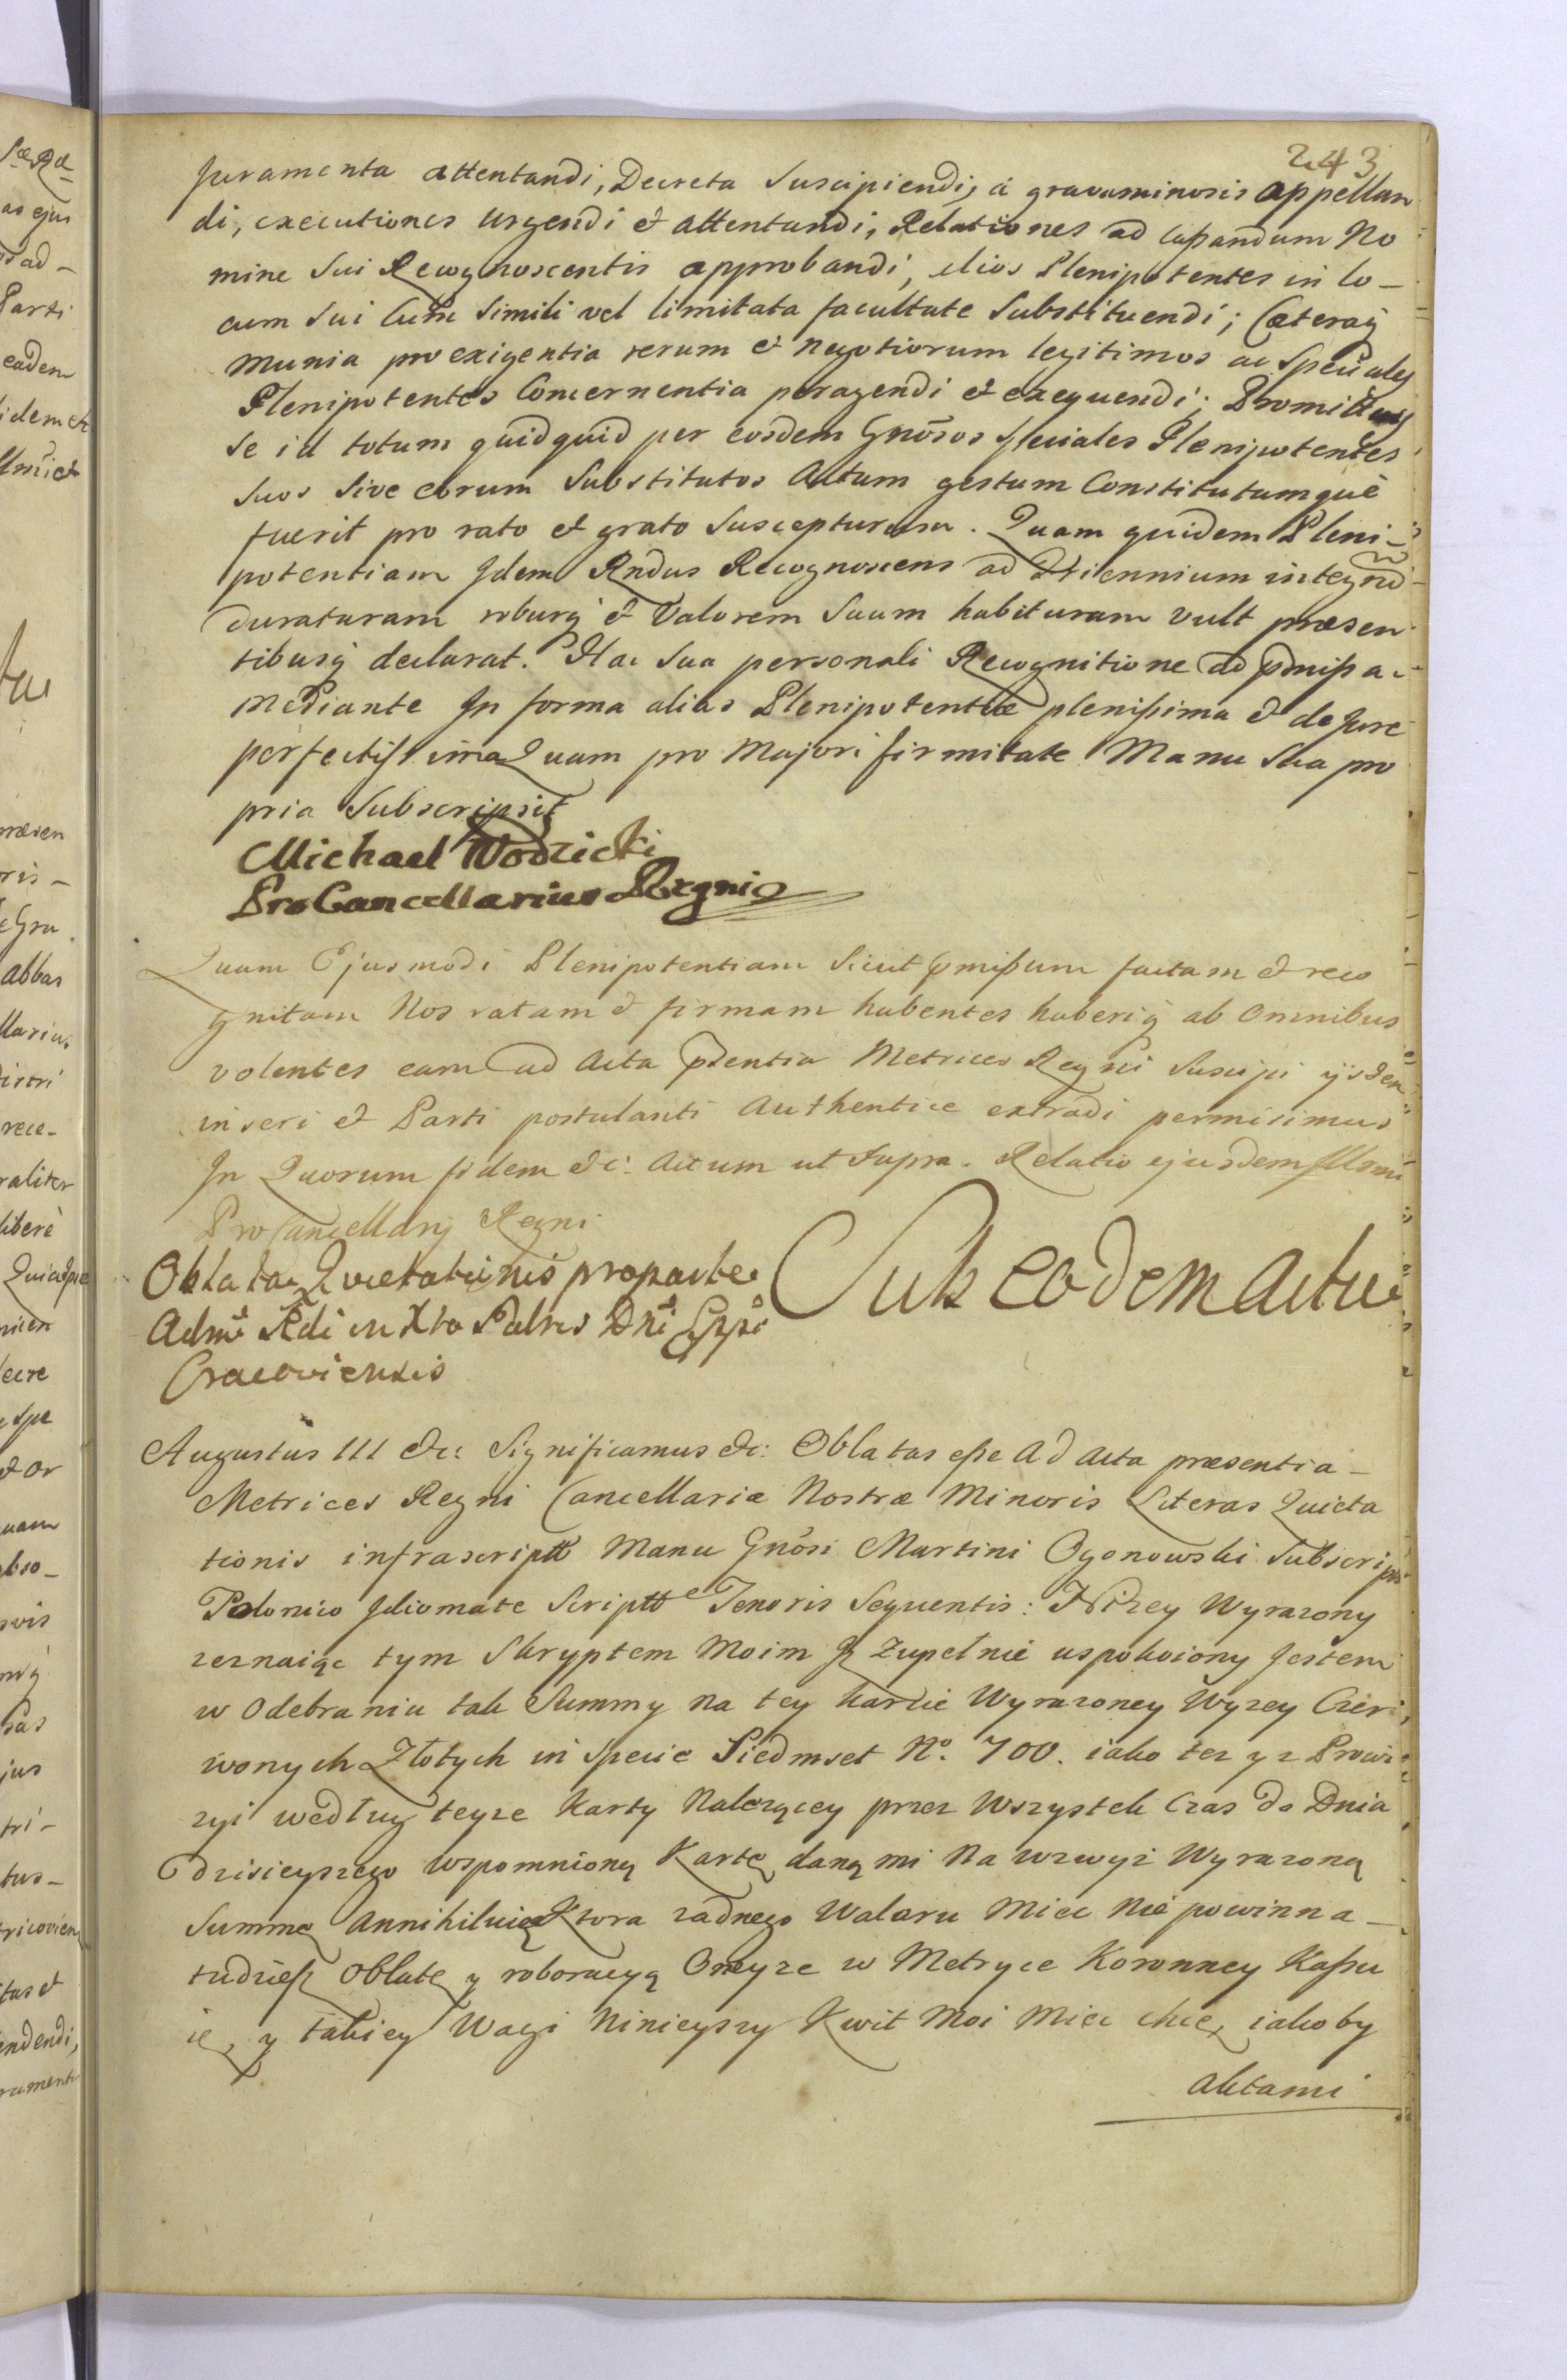 243
Juramenta attentandi, Decreta Suscipiendi, à gravaminosis appellan
di, executiones urgendi et attentandi, Relationes ad cassandum No
mine Sui Recognoscentis approbandi, alios Plenipotentes in lo-
cum Sui Cum Simili vel limitata facultate Substituendi; Cæteraq̃
munia pro exigentia rerum et negotiorum legitimos ac Speciales
Plenipotentes Concernentia peragendi et exequendi; Promittens
Se id totum quidquid per eosdem Gnõsos Speciales Plenipotentes
Suos Sive eorum Substitutos Actum gestum Constitutumquè
fuerit pro rato et grato Suscepturum. Quam quidem Pleni-
potentiam Idem Rndus Recognoscens ad Triennium integrũ
duraturam roburq̃ et Valorem Suum habituram vult præsen
tibusq̃ declarat. Hac Sua personali Recognitione ad præmissa
mediante In forma alias Plenipotentiæ plenissima et de Jure
perfectissima Quam pro Majori firmitate Manu Sua pro
pria Subscripsit
Michael Wodzicki
ProCancellarius Regni
Quam Ejusmodi Plenipotentiam Sicut præmissum factam et reco
gnitam Nos ratam et firmam habentes haberiq̃ ab Omnibus
volentes eam ad Acta præsentia Metrices Regni Suscipi ijsdem
inseri et Parti postulanti Authentice extradi permisimus
In Quorum fidem &c: Actum ut Supra. Relatio ejusdem Illsmi
ProCancellarij Regni
Oblata Quietationis pro parte
Admi Rdi in Xto Patris Dni Eppi
Cracoviensis
Sub eodem actu
Augustus III &c: Significamus &c: Oblatas esse Ad Acta præsentia-
Metrices Regni Cancellariæ Nostræ Minoris Literas Quieta
tionis infrascriptt Manu Gnõsi Martini Ogonowski Subscrip
Polonico Idiomate Scriptt Tenoris Sequentis: Niżey Wyrazony
zeznaiąc tym Skryptem Moim Iż Zupełnie uspokoiony Jestem
w Odebraniu tak Summy na tey karcie Wyrazoney Wyzey Czer
wonych Złotych in Specie Siedmset No. 700. iako tez y z Prowi
zyi według teyze Karty Nalezącey przez Wszystek Czas do Dnia
dzisieyszego wspomnioną Kartę daną mi na wzwyz Wyrazoną
Summę Annihiluię Ktora zadnego Waloru Miec Nie powinna-
tudziesz Oblatę y roboracyą Oneyze w Metryce Koronney Kassu
ię, y takiey Wagi Ninieyszy Kwit Moi Miec chcę, iakoby
aktami